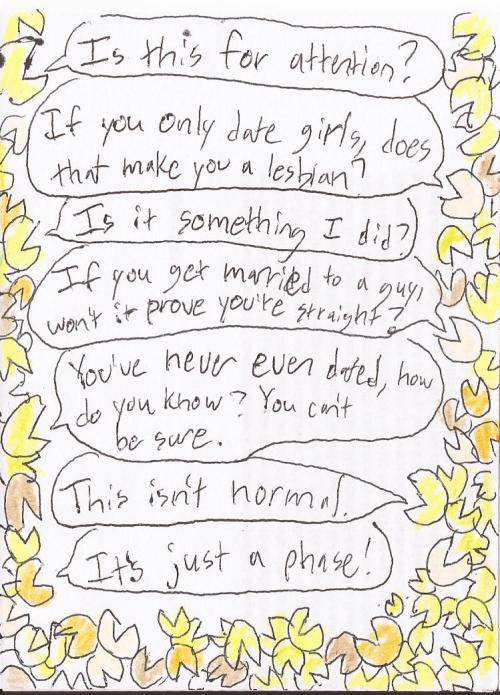 Is this for attention?
If you only date girls, does
that make you a lesbian?
Is it something I did?
If you get married to a guy,
won't it prove you're straight?
You've never even dated, how
do you know? You can't
be sure.
This isn't normal.
It's just a phase!